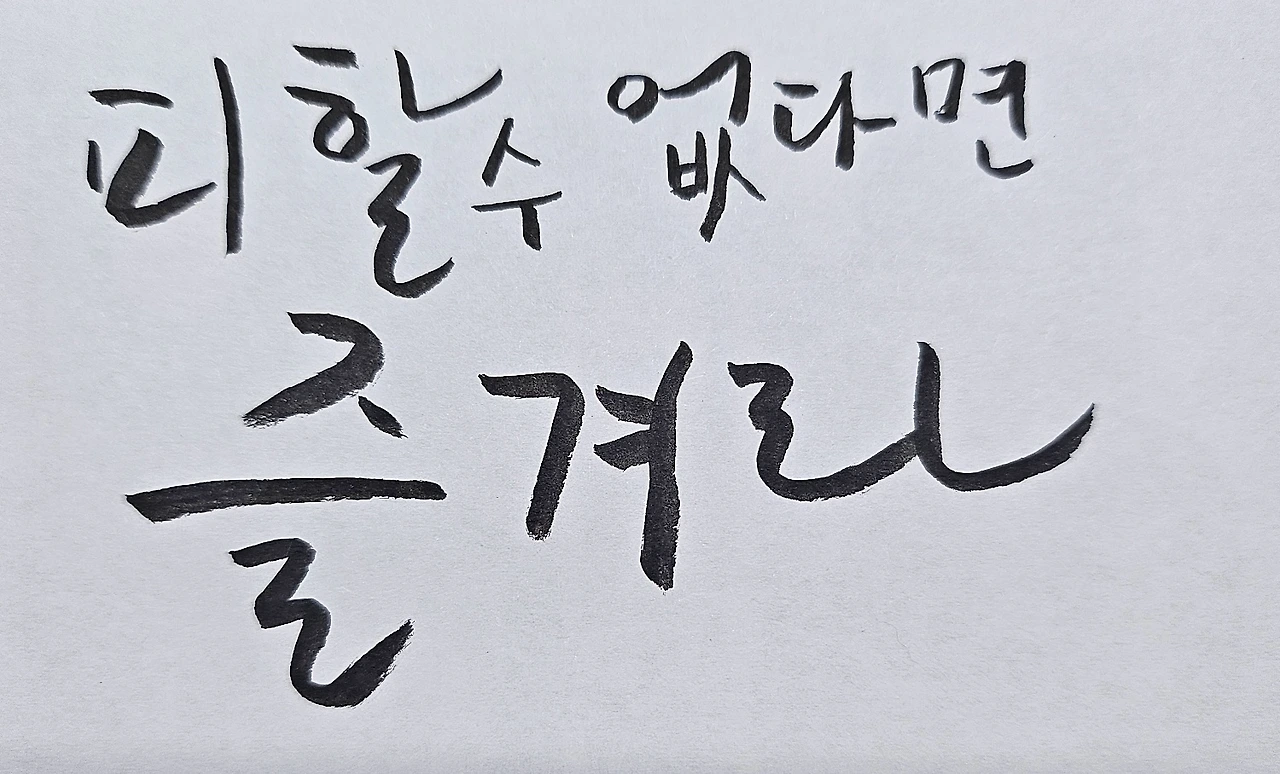 피할수 없다면
즐겨라